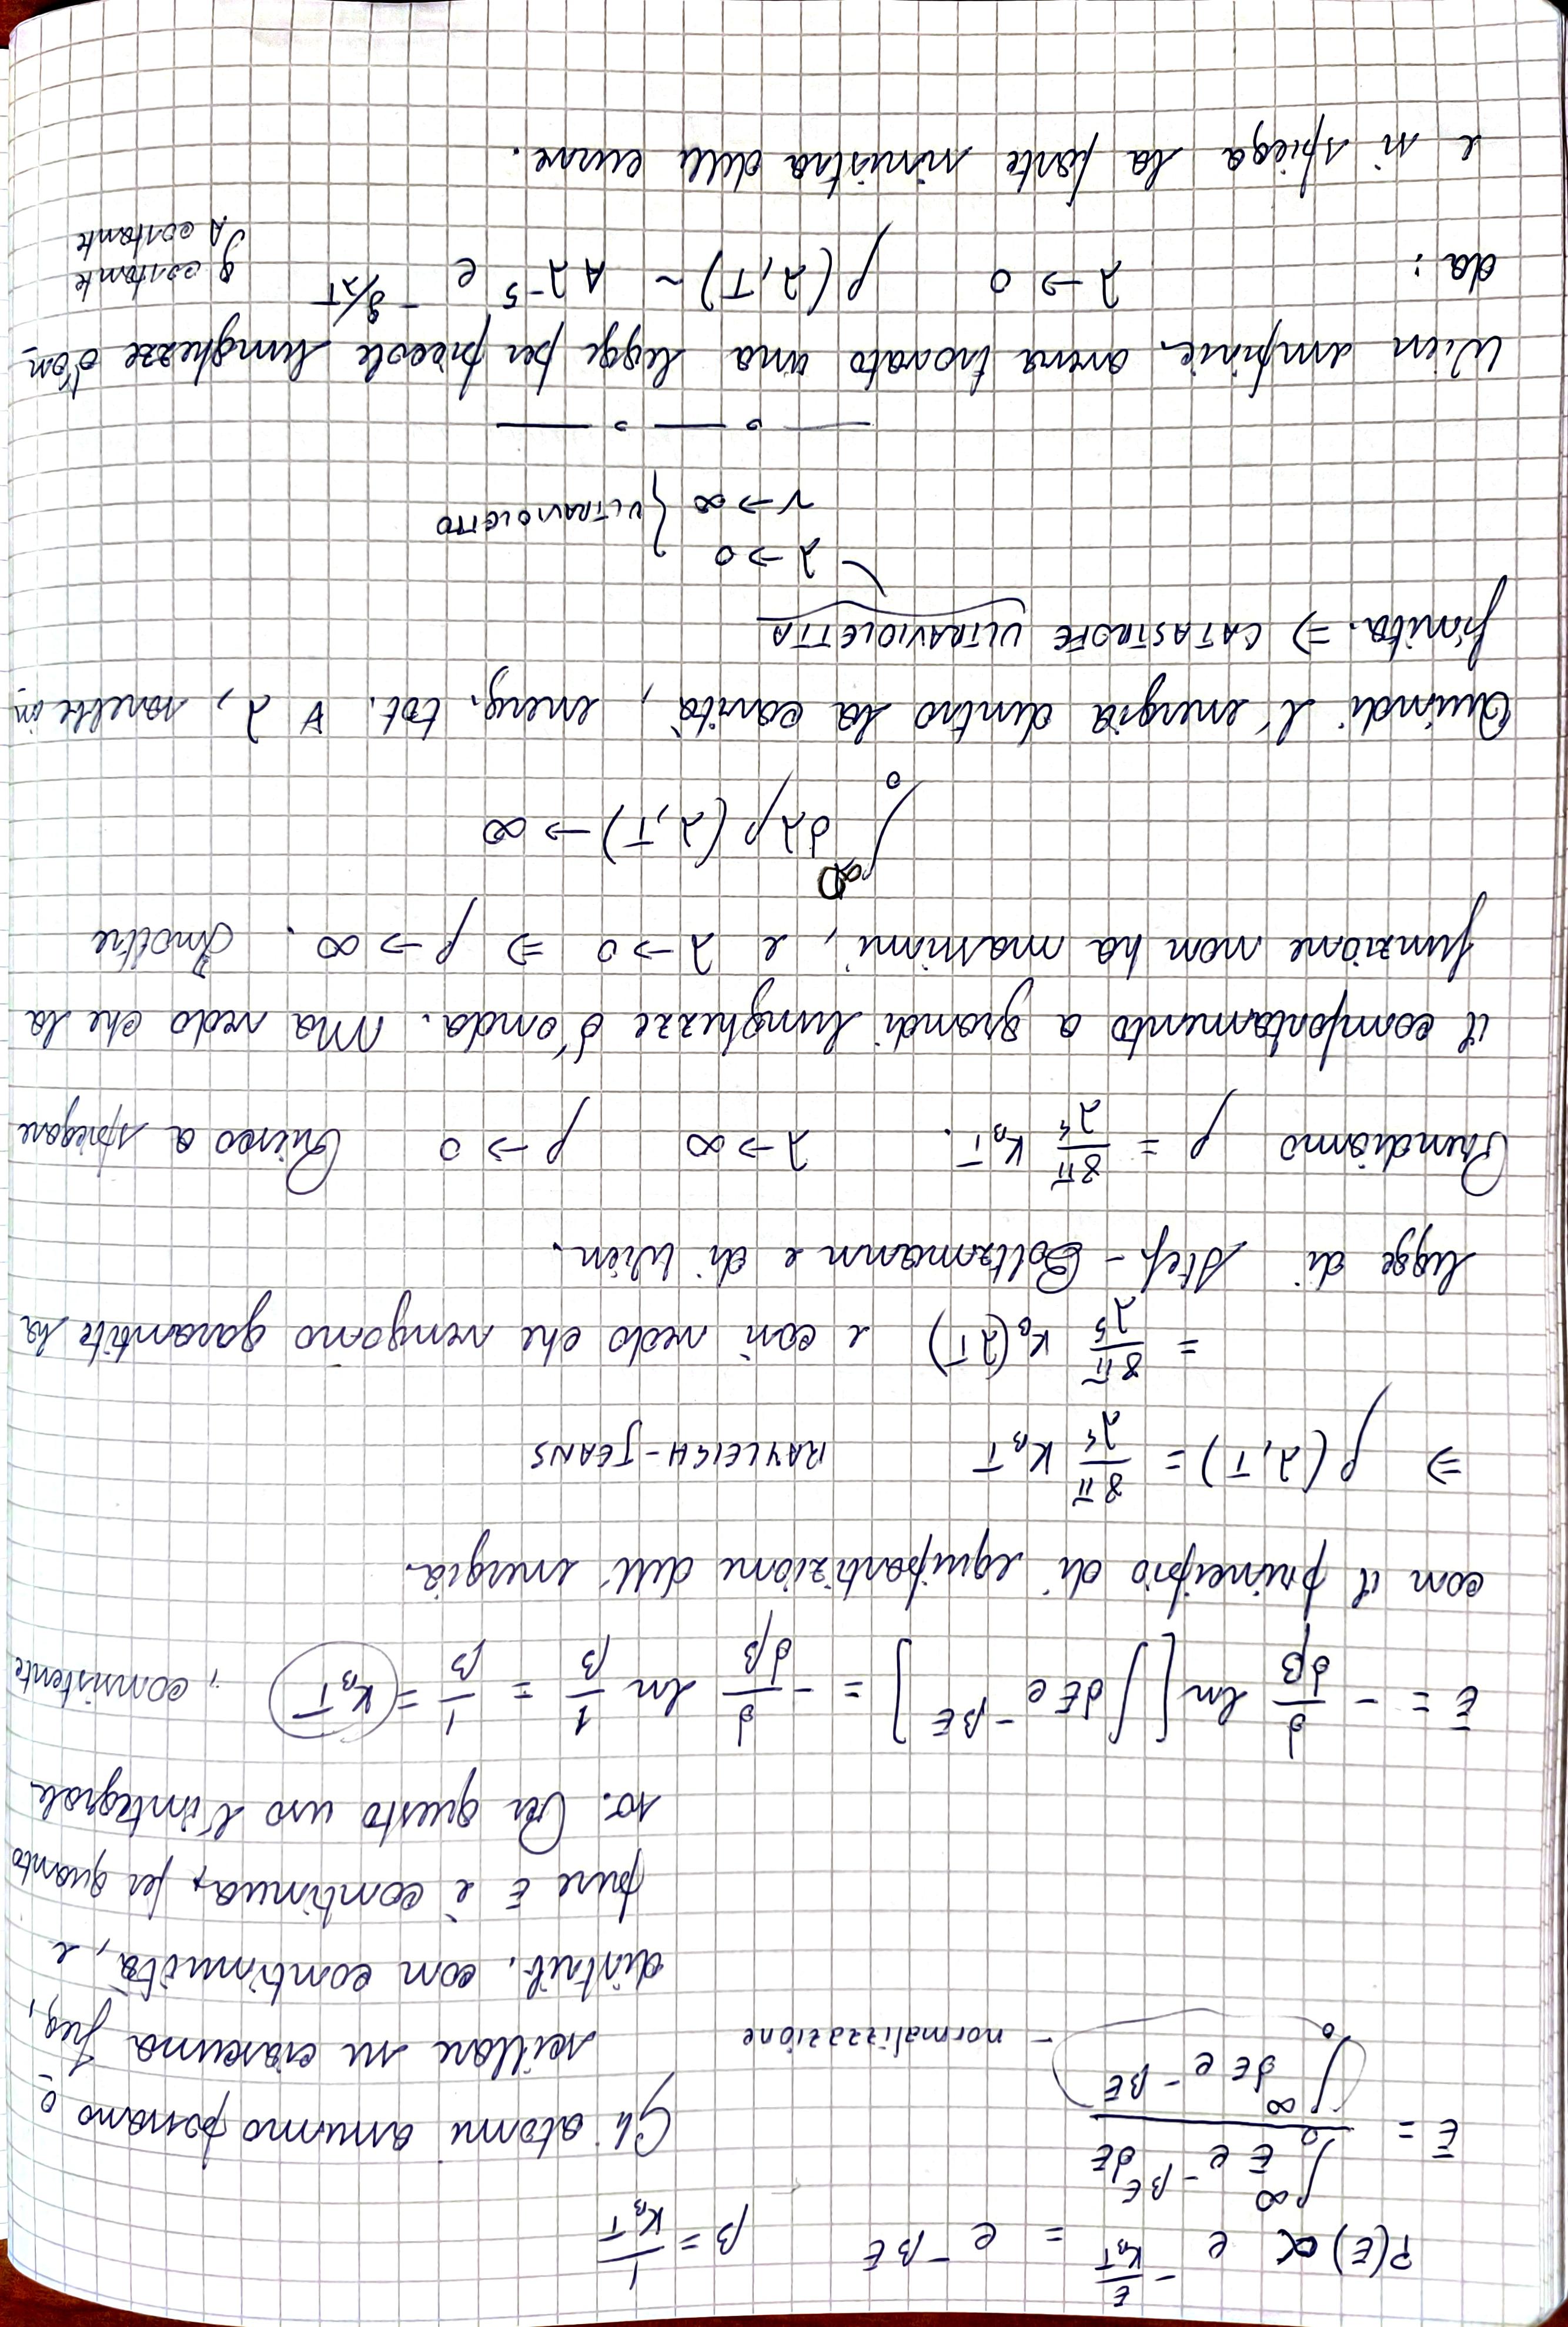 P(E) ∝ e^{-E/K_BT} = e^{-βE}    β = 1/(K_BT)
Ē = ∫_0^∞ E e^{-βE} dE / ∫_0^∞ dE e^{-βE} - normalizzazione
Gli atomi assumo possano o
scillare su ciascuna freq,
distrib. con continuità, e
pure E è continua, per quanto
so. Per questo uso l'integrale
Ē = - d/dβ ln[∫ dE e^{-βE}] = - d/dβ ln 1/β = 1/β = K_BT , consistente
con il principio di equipartizione dell'energia.
⇒ ρ(λ,T) = 8π/λ^4 K_BT    RAYLEIGH-JEANS
= 8π/λ^5 K_B(λT) e così vedo che vengono garantite la
legge di Stef-Boltzmann e di Wien.
Prendiamo ρ = 8π/λ^4 K_BT.    λ → ∞    ρ → 0    Riesco a spiegare
il comportamento a grandi lunghezze d'onda. Ma vedo che la
funzione non ha massimi, e λ → 0 ⇒ ρ → ∞. Inoltre
∫_0^∞ dλ ρ(λ,T) → ∞
Quindi l'energia dentro la cavità, energ. tot. ∀ λ, sarebbe in
finita. ⇒ CATASTROFE ULTRAVIOLETTA
λ → 0
ν → ∞ } ULTRAVIOLETTO
Wien empiric. aveva trovato una legge per piccole lunghezze d'on
da:    λ → 0    ρ(λ,T) ~ A λ^{-5} e^{-g/λT}    g costante
A costante
e si spiega la parte sinistra delle curve.